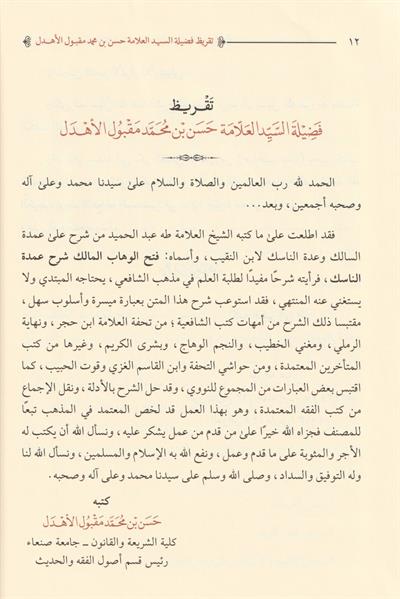 ١٢ تقريظ فضيلة السيد العلامة حسن بن محمد مقبول الأهدل
تَقْرِيظ
فَضِيْلَةَ السَّيِّدِ العَلَّامَة حَسَن بْن مُحَمَّد مَقْبُول الأَهْدَل
الحمد لله رب العالمين والصلاة والسلام على سيدنا محمد وعلى آله
وصحبه أجمعين، وبعد...
فقد اطلعت على ما كتبه الشيخ العلامة طه عبد الحميد من شرح على عمدة
السالك وعدة الناسك لابن النقيب، وأسماه: فتح الوهاب المالك شرح عمدة
الناسك، فرأيته شرحًا مفيدًا لطلبة العلم في مذهب الشافعي، يحتاجه المبتدي ولا
يستغني عنه المنتهي، فقد استوعب شرح هذا المتن بعبارة ميسرة وأسلوب سهل،
مقتبسا ذلك الشرح من أمهات كتب الشافعية؛ من تحفة العلامة ابن حجر، ونهاية
الرملي، ومغني الخطيب، والنجم الوهاج، وبشرى الكريم، وغيرها من كتب
المتأخرين المعتمدة، ومن حواشي التحفة وابن القاسم الغزي وقوت الحبيب، كما
اقتبس بعض العبارات من المجموع للنووي، وقد حل الشرح بالأدلة، ونقل الإجماع
من كتب الفقه المعتمدة، وهو بهذا العمل قد لخص المعتمد في المذهب تبعًا
للمصنف فجزاه الله خيرًا على من قدم من عمل يشكر عليه، ونسأل الله أن يكتب له
الأجر والمثوبة على ما قدم وعمل، ونفع الله به الإسلام والمسلمين، ونسأل الله لنا
وله التوفيق والسداد، وصلى الله وسلم على سيدنا محمد وعلى آله وصحبه.
كتبه
حَسَن بْن مُحَمَّد مَقْبُول الأَهْدَل
كلية الشريعة والقانون ــ جامعة صنعاء
رئيس قسم أصول الفقه والحديث